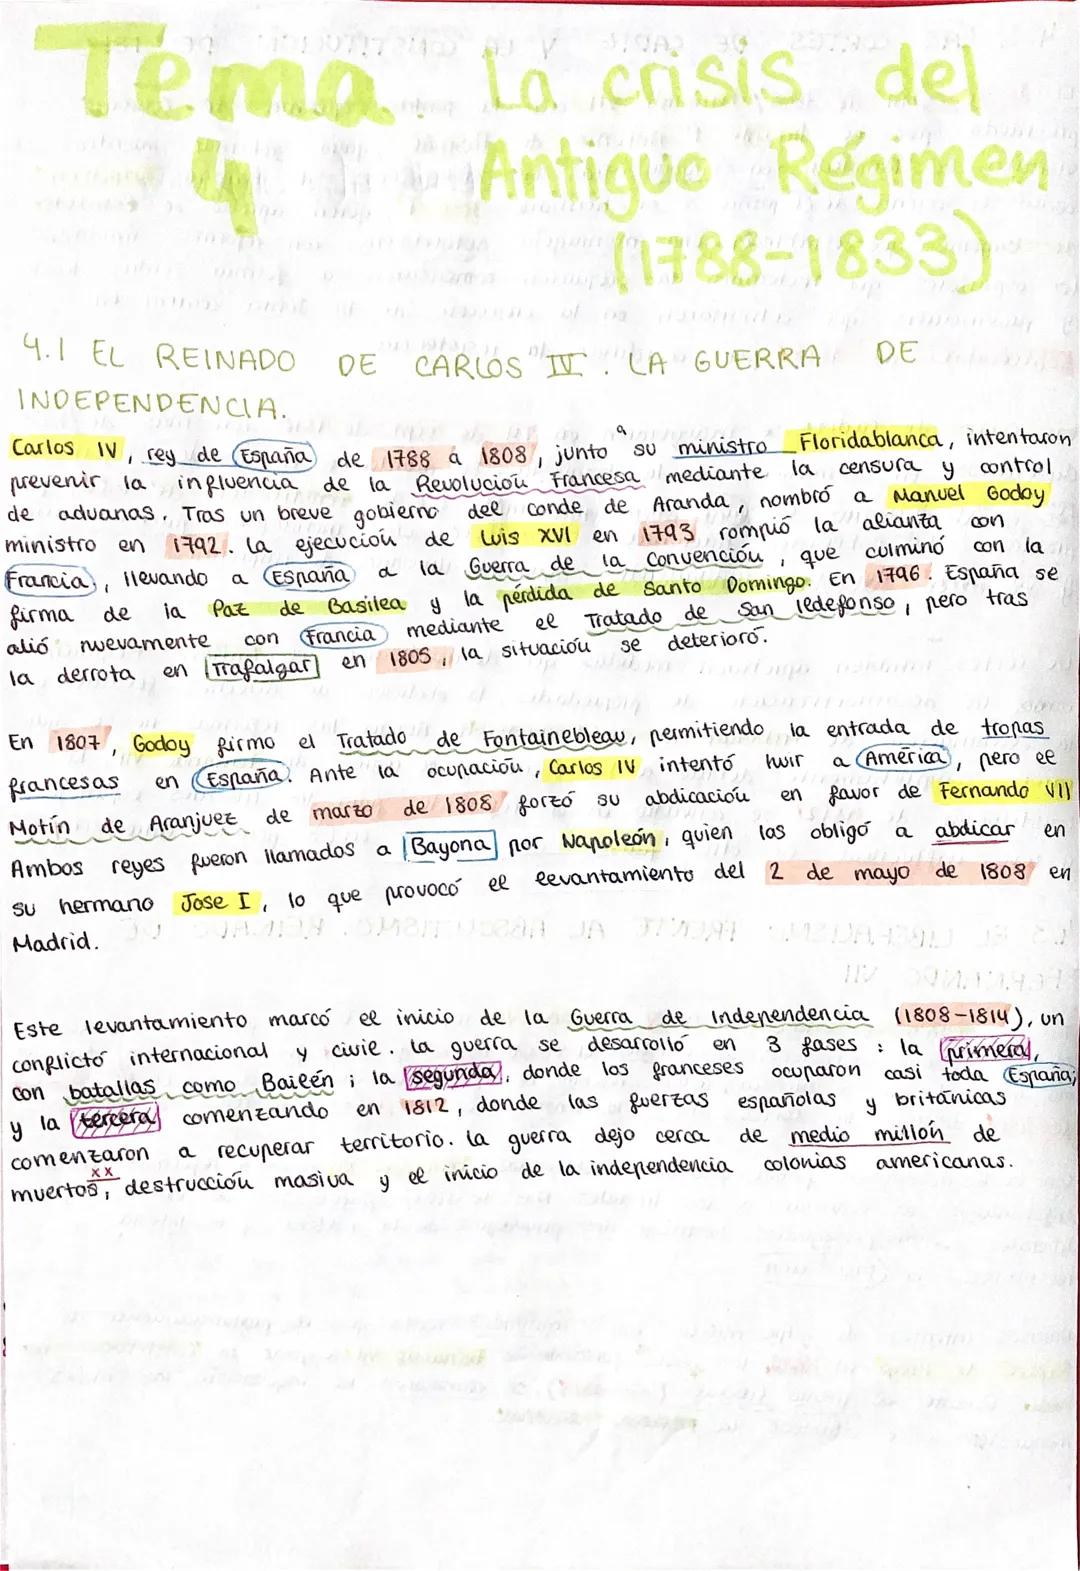 Tema 4
La crisis del
Antiguo Régimen
(1788-1833)
4.1 EL REINADO DE CARLOS IV. LA GUERRA DE
INDEPENDENCIA.
Carlos IV, rey de España de 1788 a 1808, junto a su ministro Floridablanca, intentaron
prevenir la influencia de la Revolución Francesa mediante la censura y control
de aduanas. Tras un breve gobierno del conde de Aranda, nombró a Manuel Godoy
ministro en 1792. La ejecución de Luis XVI en 1793 rompió la alianza con
Francia, llevando a España a la Guerra de la Convención, que culminó con la
firma de la Paz de Basilea y la pérdida de Santo Domingo. En 1796. España se
alió nuevamente con Francia mediante el Tratado de San Ildefonso, pero tras
la derrota en Trafalgar en 1805, la situación se deterioró.
En 1807, Godoy firmo el Tratado de Fontainebleau, permitiendo la entrada de tropas
francesas en España. Ante la ocupación, Carlos IV intentó huir a América, pero el
Motín de Aranjuez de marzo de 1808 forzó su abdicación en favor de Fernando VII
Ambos reyes fueron llamados a Bayona por Napoleón, quien los obligó a abdicar en
su hermano Jose I, lo que provocó el levantamiento del 2 de mayo de 1808 en
Madrid.
Este levantamiento marcó el inicio de la Guerra de Independencia (1808-1814), un
conflictó internacional y civil. La guerra se desarrolló en 3 fases: la primera,
con batallas como Bailén; la segunda, donde los franceses ocuparon casi toda España;
y la tercera comenzando en 1812, donde las fuerzas españolas y británicas
comenzaron a recuperar territorio. La guerra dejo cerca de medio millón de
muertos, destrucción masiva y el inicio de la independencia colonias americanas.